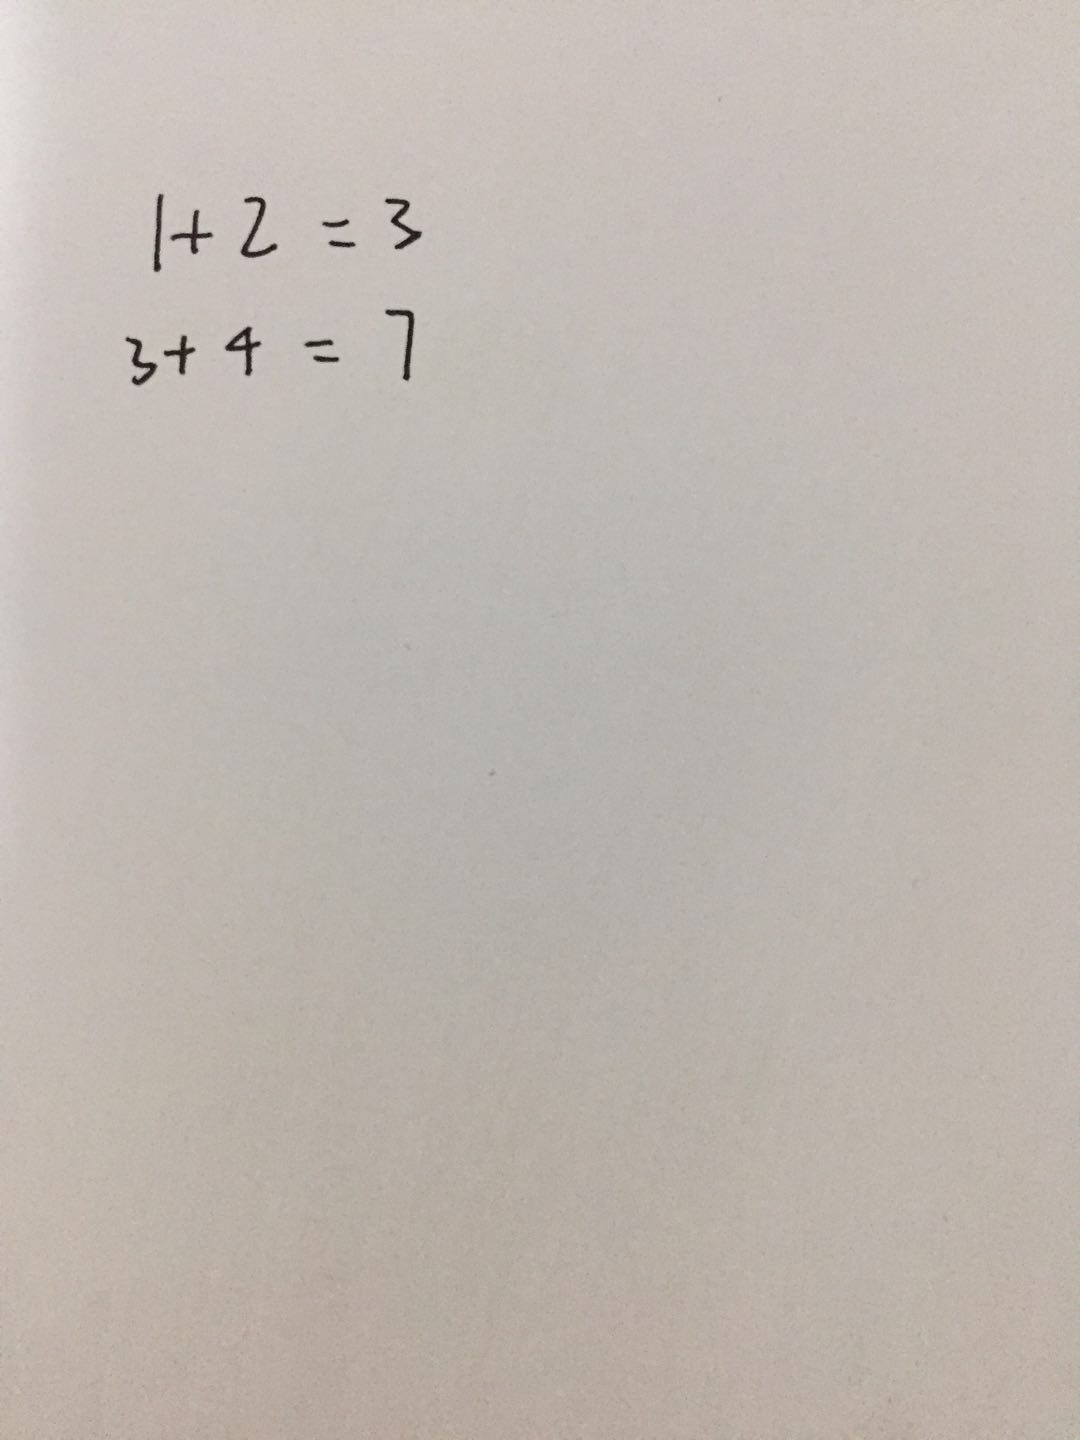 1+2=3
3+4=7